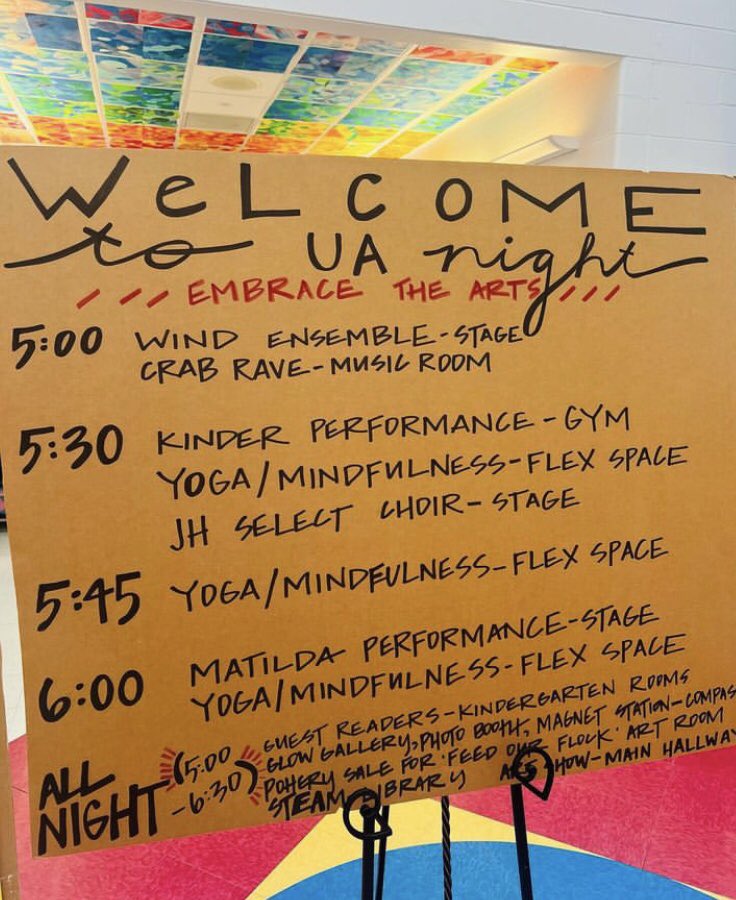 WeLCOME
to UA night
EMBRACE THE ARTS
5:00 WIND ENSEMBLE-STAGE
CRAB RAVE-MUSIC ROOM
5:30 KINDER PERFORMANCE-GYM
YOGA/MINDFULNESS-FLEX SPACE
JH SELECT CHOIR-STAGE
5:45 YOGA/MINDFULNESS-FLEX SPACE
6:00 MATILDA PERFORMANCE-STAGE
YOGA/MINDFULNESS-FLEX SPACE
ALL NIGHT (5:00-6:30)
GUEST READERS-KINDERGARTEN ROOMS
GLOW GALLERY, PHOTO BOOTH, MAGNET STATION-COMPAS
POTTERY SALE FOR 'FEED OUR FLOCK' ART ROOM
STEAM-LIBRARY ART SHOW-MAIN HALLWAY